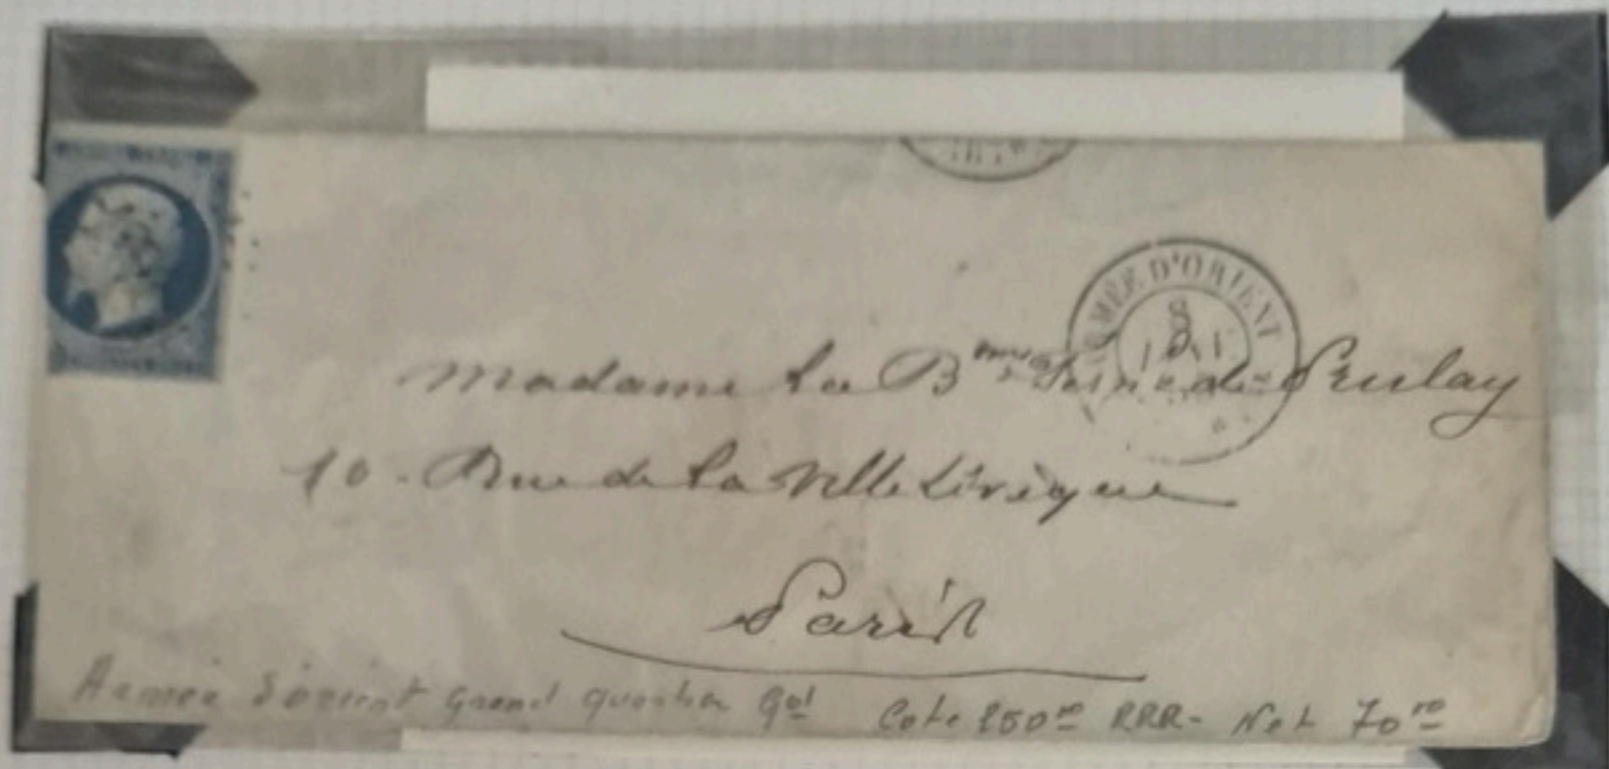 ARMÉE D'ORIENT
8
Madame La B^nne de Peulay
10. Rue de la Ville L'évêque
Paris
Armée d'orient Grand quartier Gal Cote 250 RRR - Net 70